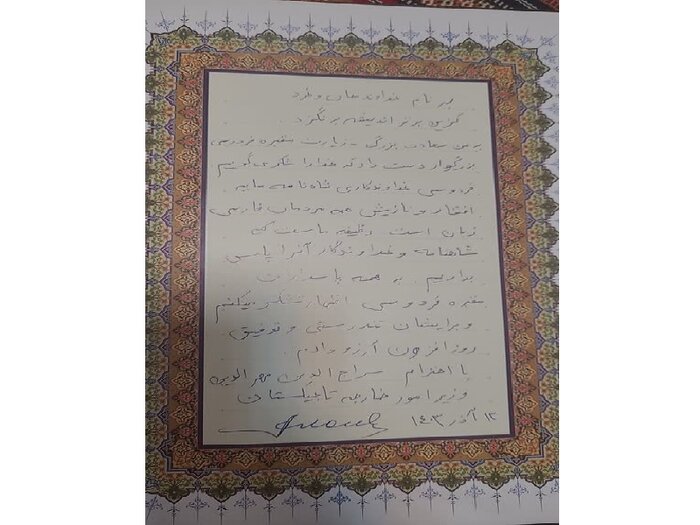 به نام خداوند جان و خرد
کزین برتر اندیشه برنگذرد
به من سعادت بزرگ - زیارت مقبره فردوسی
بزرگوار دست داد که خدا را شکر می گویم
فردوسی خداوندگاری شاه نامه مایه
افتخار و نازش همه مردمان فارسی
زبان است. وظیفه ماست که
شاهنامه و خداوندگار آنرا پاس
بداریم. به همه پاسداران
مقبره فردوسی اظهار تشکر میکنم
و برایشان تندرستی و توفیق
روز افزون آرزو دارم.
با احترام سراج الدین مهرالدین
وزیر امور خارجه تاجیکستان
۱۲ آذر ۱۴۰۳